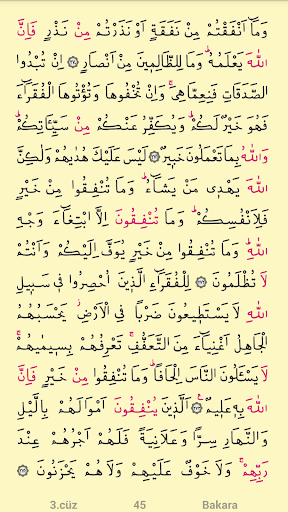 وَمَٓا اَنْفَقْتُمْ مِنْ نَفَقَةٍ اَوْ نَذَرْتُمْ مِنْ نَذْرٍ فَاِنَّ
اللّٰهَ يَعْلَمُهُۜ وَمَا لِلظَّالِم۪ينَ مِنْ اَنْصَارٍ ﴿٢٧٠﴾ اِنْ تُبْدُوا
الصَّدَقَاتِ فَنِعِمَّا هِيَۚ وَاِنْ تُخْفُوهَا وَتُؤْتُوهَا الْفُقَرَٓاءَ
فَهُوَ خَيْرٌ لَكُمْۜ وَيُكَفِّرُ عَنْكُمْ مِنْ سَيِّـَٔاتِكُمْۜ
وَاللّٰهُ بِمَا تَعْمَلُونَ خَب۪يرٌ ﴿٢٧١﴾ لَيْسَ عَلَيْكَ هُدٰيهُمْ وَلٰكِنَّ
اللّٰهَ يَهْد۪ي مَنْ يَشَٓاءُۜ وَمَا تُنْفِقُوا مِنْ خَيْرٍ
فَلِاَنْفُسِكُمْۜ وَمَا تُنْفِقُونَ اِلَّا ابْتِغَٓاءَ وَجْهِ
اللّٰهِۜ وَمَا تُنْفِقُوا مِنْ خَيْرٍ يُوَفَّ اِلَيْكُمْ وَاَنْتُمْ
لَا تُظْلَمُونَ ﴿٢٧٢﴾ لِلْفُقَرَٓاءِ الَّذ۪ينَ اُحْصِرُوا ف۪ي سَب۪يلِ
اللّٰهِ لَا يَسْتَط۪يعُونَ ضَرْبًا فِي الْاَرْضِۘ يَحْسَبُهُمُ
الْجَاهِلُ اَغْنِيَٓاءَ مِنَ التَّعَفُّفِۚ تَعْرِفُهُمْ بِس۪يمٰيهُمْۚ
لَا يَسْـَٔلُونَ النَّاسَ اِلْحَافًاۜ وَمَا تُنْفِقُوا مِنْ خَيْرٍ فَاِنَّ
اللّٰهَ بِه۪ عَل۪يمٌ ﴿٢٧٣﴾ اَلَّذ۪ينَ يُنْفِقُونَ اَمْوَالَهُمْ بِالَّيْلِ
وَالنَّهَارِ سِرًّا وَعَلَانِيَةً فَلَهُمْ اَجْرُهُمْ عِنْدَ
رَبِّهِمْۚ وَلَا خَوْفٌ عَلَيْهِمْ وَلَا هُمْ يَحْزَنُونَ ﴿٢٧٤﴾
3.cüz 45 Bakara